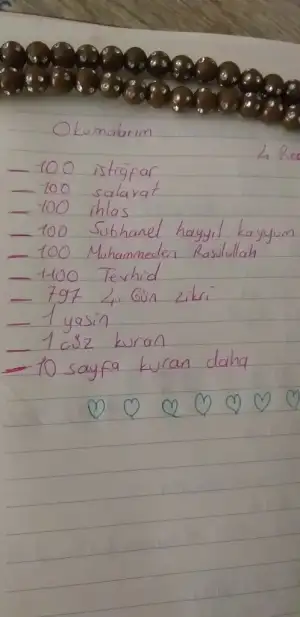 Okumalarım
4.
— 100 istiğfar
— 100 salavat
— 100 ihlas
— 100 Subhanel hayyıl kayyum
— 100 Muhammeden Rasulullah
— 1100 Tevhid
— 797 4. Gün zikri
— 1 yasin
— 1 cüz kuran
— 10 sayfa kuran daha